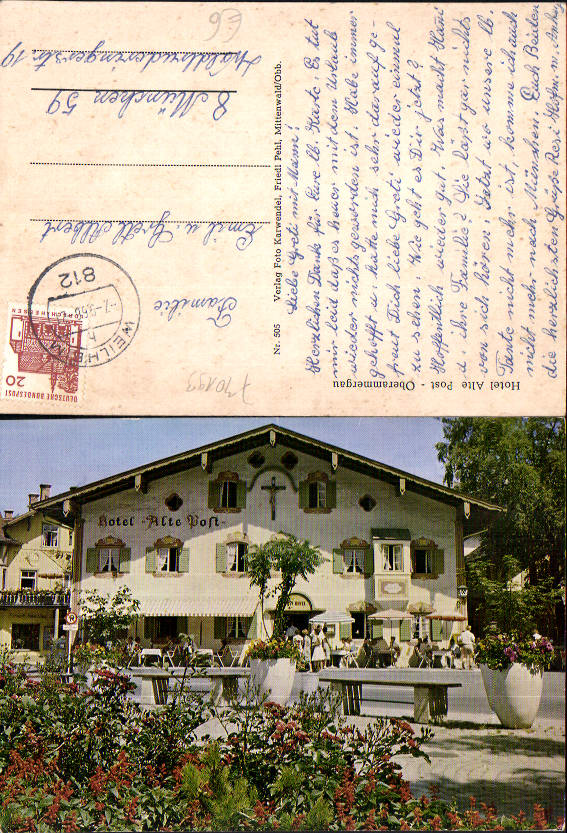 Hotel Alte Post - Oberammergau
Liebe Greti mit Mann!
Herzlichen Dank für Eure lb. Karte. Es tut
mir leid daß es heuer mit dem Urlaub
wieder nichts geworden ist. Habe immer
gehofft u. hätte mich sehr darauf ge-
freut Dich liebe Greti wieder einmal
zu sehen. Wie geht es Dir jetzt?
Hoffentlich wieder gut. Was macht Hani
u. Ihre Familie? Die läßt gar nichts
von sich hören. Jetzt wo unsere lb.
Tante nicht mehr ist, komme ich auch
nicht mehr nach München. Euch Beiden
die herzlichsten Grüße Resi Hofm. m.
Nr. 505 Verlag Foto Karwendel, Friedl Pehl, Mittenwald/Obb.
DEUTSCHE BUNDESPOST
20
LORSCH/HESSEN
WEILHEIM
812
Familie
Emil u. Gretl Albert
8 München 59
Waldtruderingerstr. 19
E6
Hotel "Alte Post"